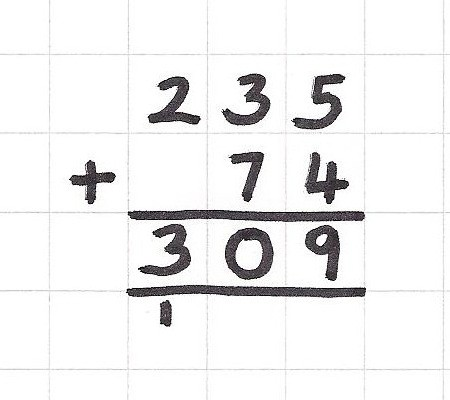 235
+ 74
309
1